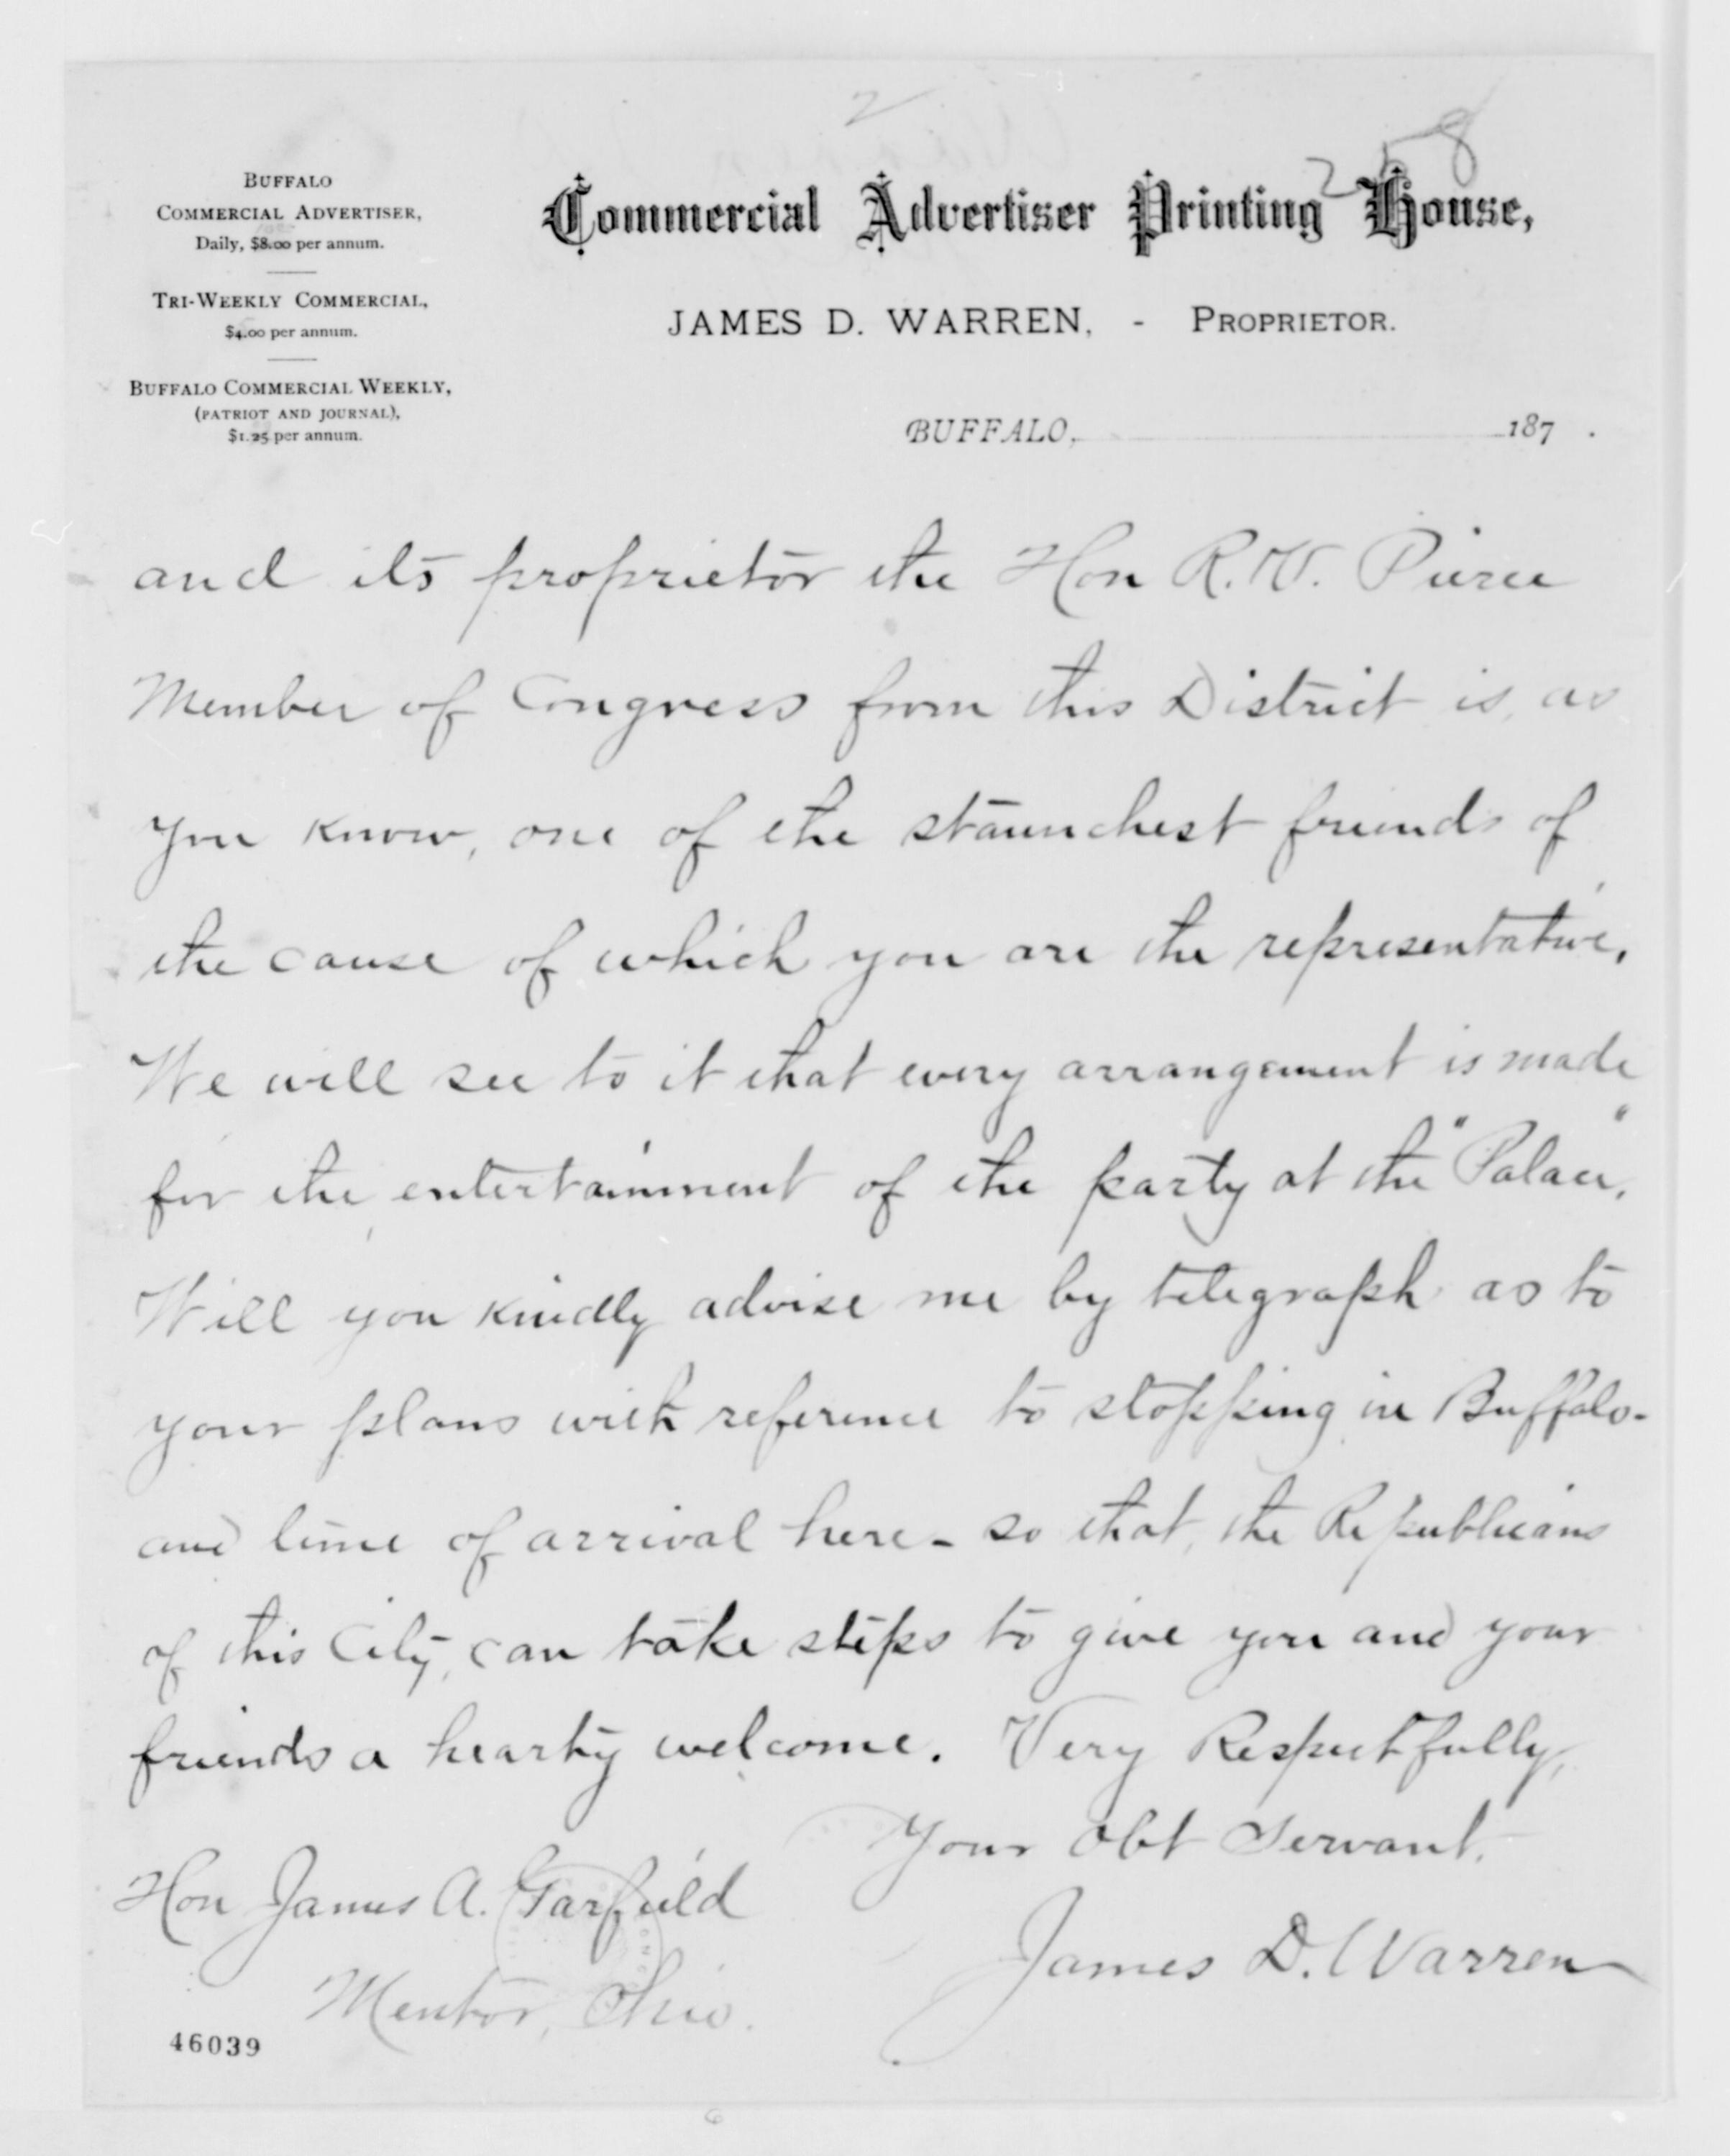 2
258
BUFFALO
COMMERCIAL ADVERTISER,
Daily, $8.00 per annum.
TRI-WEEKLY COMMERCIAL,
$4.00 per annum.
BUFFALO COMMERCIAL WEEKLY,
(PATRIOT AND JOURNAL),
$1.25 per annum.
Commercial Advertiser Printing House,
JAMES D. WARREN, - PROPRIETOR.
BUFFALO, 187 .
and its proprietor the Hon R. V. Pierce
Member of Congress from this District is, as
you know, one of the staunchest friends of
the cause of which you are the representative.
We will see to it that every arrangement is made
for the entertainment of the party at the "Palace."
Will you kindly advise me by telegraph as to
your plans with reference to stopping in Buffalo-
and time of arrival here - so that, the Republicans
of this City, can take steps to give you and your
friends a hearty welcome. Very Respectfully,
Your Obt Servant.
James D. Warren
Hon James A. Garfield
Mentor, Ohio.
46039